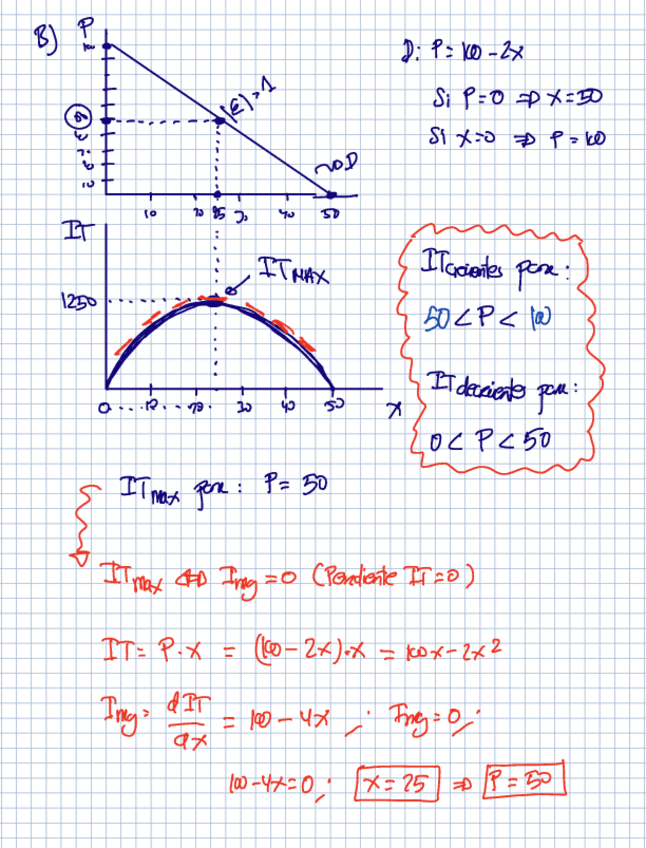 B) P
D: P = 100 - 2x
Si P=0 ⇒ x=50
Si x=0 ⇒ P=100
|E|=1
D
10 20 25 30 40 50
IT
IT MAX
1250
0 . . . 10 . . . 20 . . 30 40 50 x
IT crecientes para:
50 < P < 100
IT decreciente para:
0 < P < 50
IT max para: P = 50
IT max ⇔ Img = 0 (Pendiente IT=0)
IT = P · x = (100 - 2x) · x = 100x - 2x²
Img = dIT/dx = 100 - 4x ; Img = 0 ;
100 - 4x = 0 ; x = 25 ⇒ P = 50